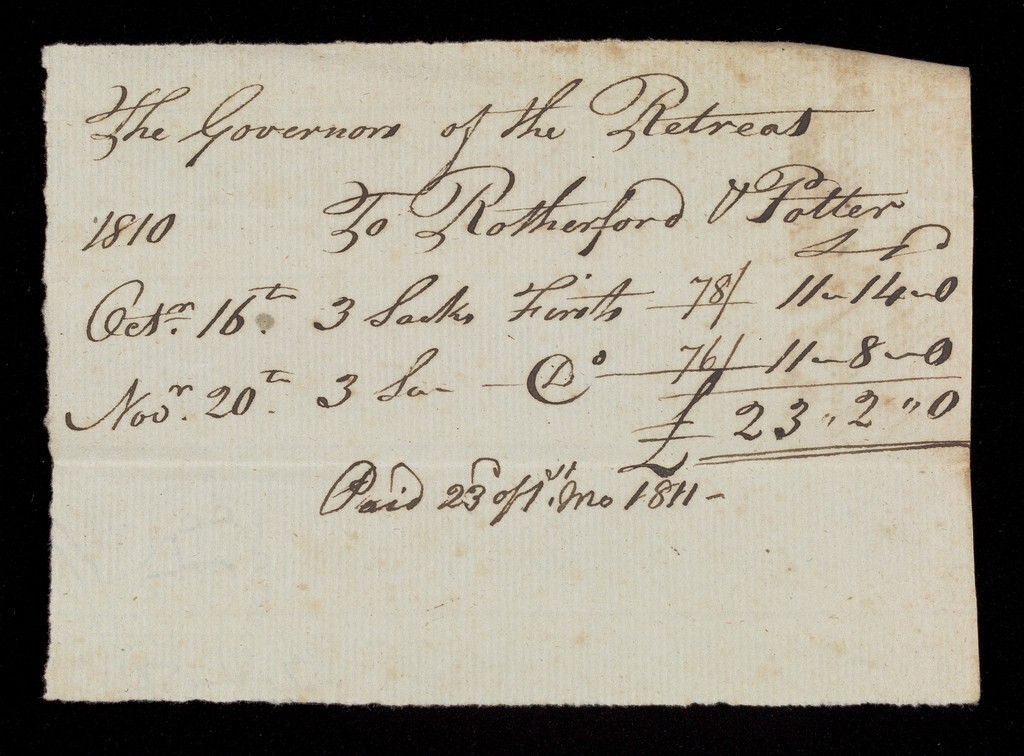 The Governors of the Retreat
1810 To Rotherford & Potter
£ s d
Octr. 16th. 3 Sacks Firsts — 78/ 11 - 14 - 0
Novr. 20th. 3 Sa — Do — 76/ 11 - 8 - 0
£ 23 " 2 " 0
Paid 23d of 1st. Mo 1811 -